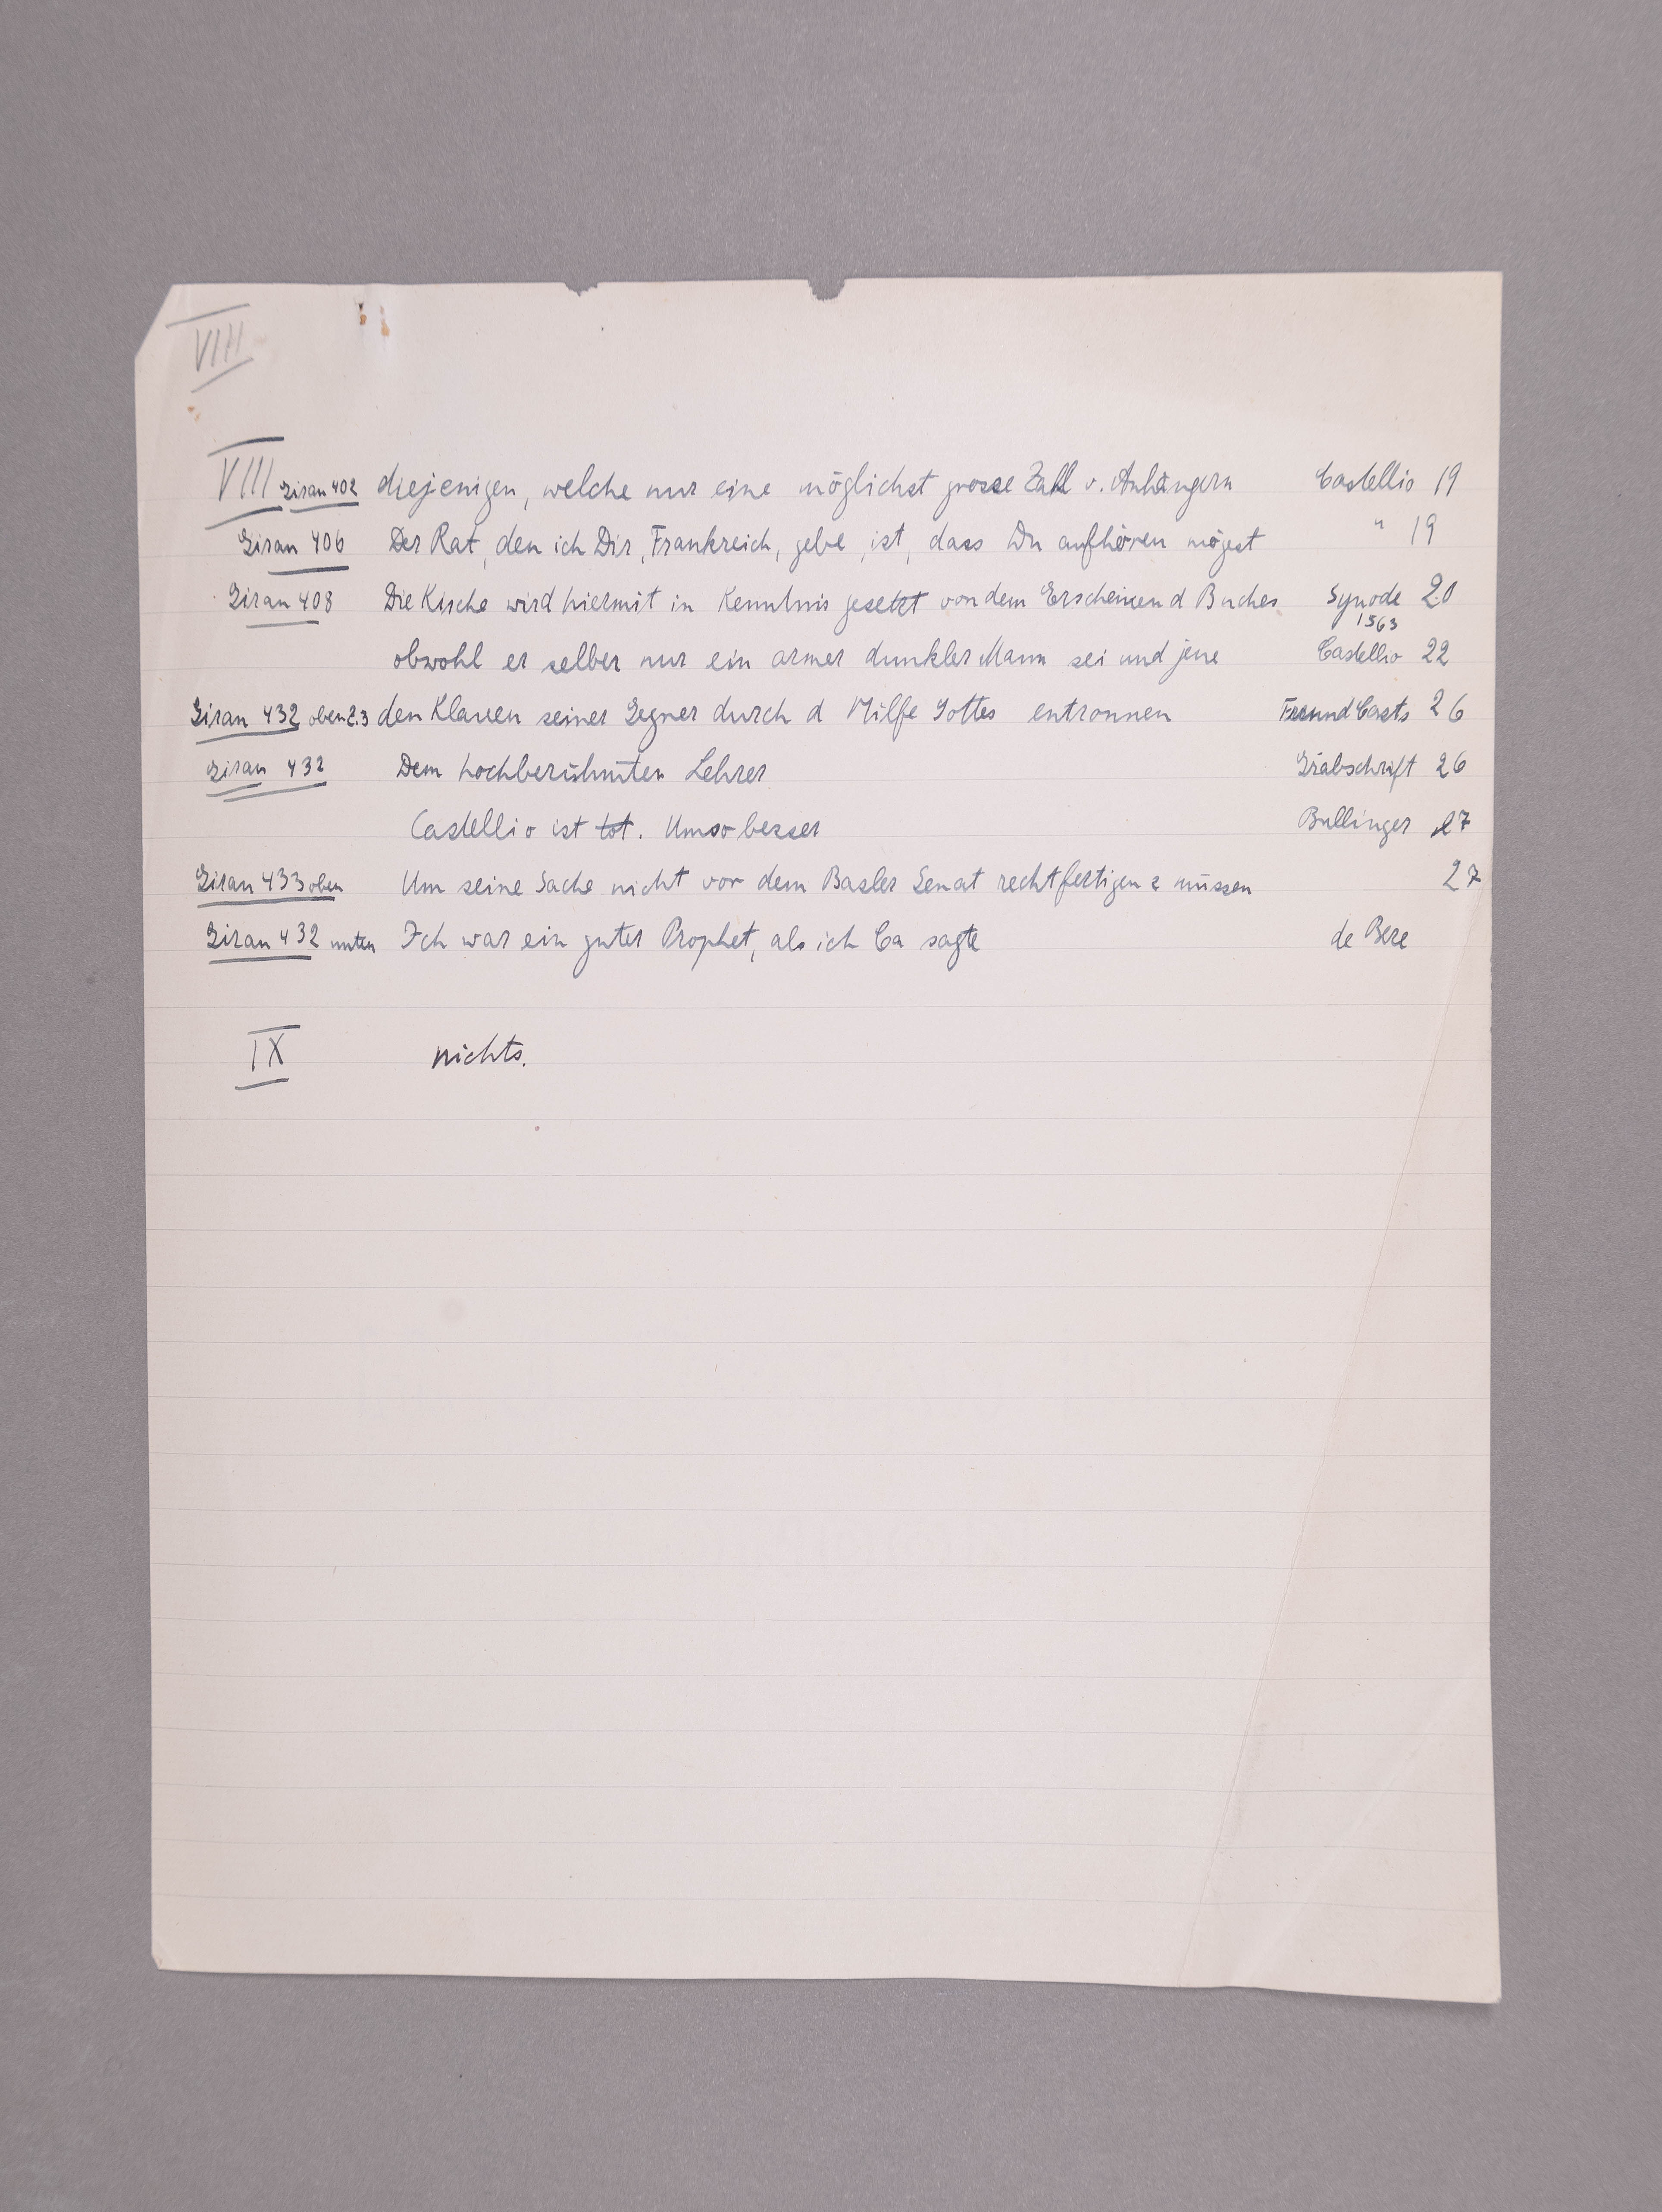 VIII
VIII Giran 402 diejenigen, welche nur eine möglichst grosse Zahl v. Anhängern Castellio 19
Giran 406 Der Rat, den ich Dir, Frankreich, gebe, ist, dass Du aufhören mögest " 19
Giran 408 Die Kirche wird hiermit in Kenntnis gesetzt von dem Erscheinen d Buches Synode 20
1563
obwohl er selber nur ein armer dunkler Mann sei und jene Castellio 22
Giran 432 oben Z.3 den Klauen seiner Gegner durch d Hilfe Gottes entronnen Freund Casts 26
Giran 432 Dem hochberühmten Lehrer Grabschrift 26
Castellio ist tot. Umso besser Bullinger 27
Giran 433 oben Um seine Sache nicht vor dem Basler Senat rechtfertigen z müssen 27
Giran 432 unten Ich war ein guter Prophet, als ich Ca sagte de Beze
IX nichts.